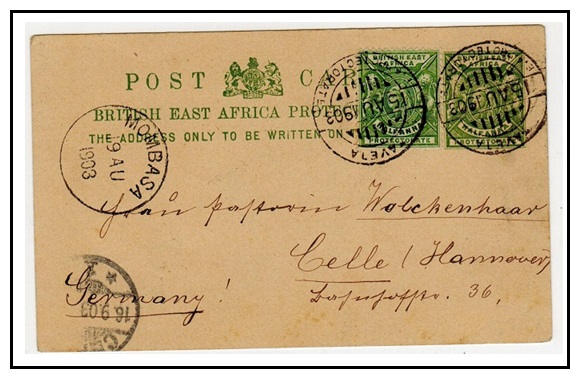 POST CAR
BRITISH EAST AFRICA PROTE
THE ADDRESS ONLY TO BE WRITTEN ON
BRITISH EAST AFRICA
HALF ANNA
PROTECTORATE
BRITISH EAST AFRICA
HALF ANNA
PROTECTORATE
TAVETA
15 AU 1903
15 AU 1903
MOMBASA
19 AU
1903
Frau Pastorin Wolckenhaar
Celle (Hannover)
Germany!
Bahnhofstr. 36,
16.9.03